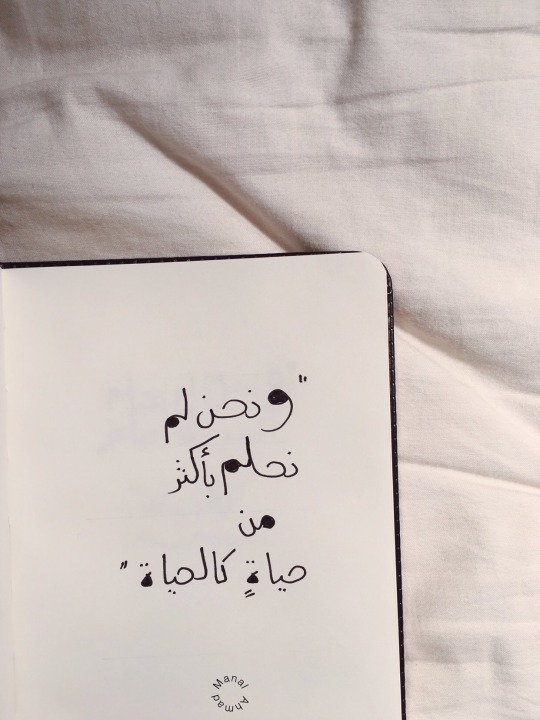 "ونحن لم
نحلم بأكثر
من
حياةٍ كالحياة"
Manal Ahmad